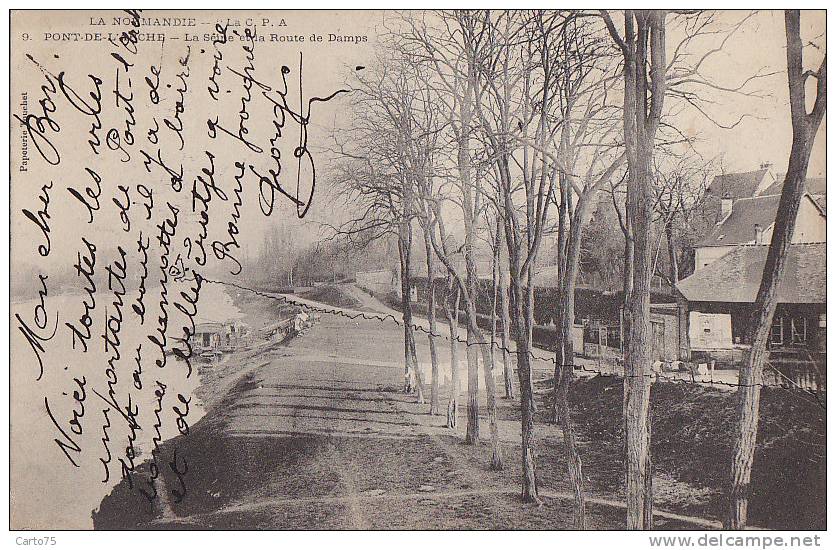 LA NORMANDIE - La C. P. A
9. PONT-DE-L'ARCHE — La Seine et la Route de Damps
Papeterie Touchet
Mon cher Bory
Voici toutes les villes
importantes de Pont-l'Arch
tout au bout il y a de
bonnes chamottes à boire
et de belles
a voire
Bonne poignée
Georges
Carto75
© www.delcampe.net